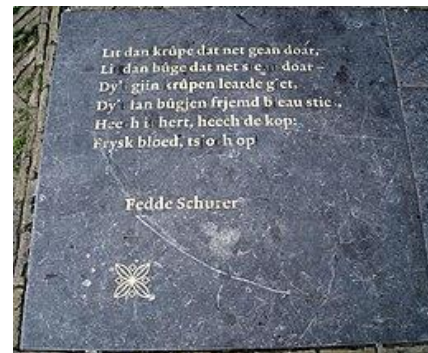 Lit dan krûpe dat net gean doar,–
Lit dan bûge dat net stean doar –
Dy't gjin krûpen learde giet,
Dy't fan bûgjen frjemd bleau stiet,
Heech it hert, heech de kop:
Frysk bloed, tsjoch op
Fedde Schurer